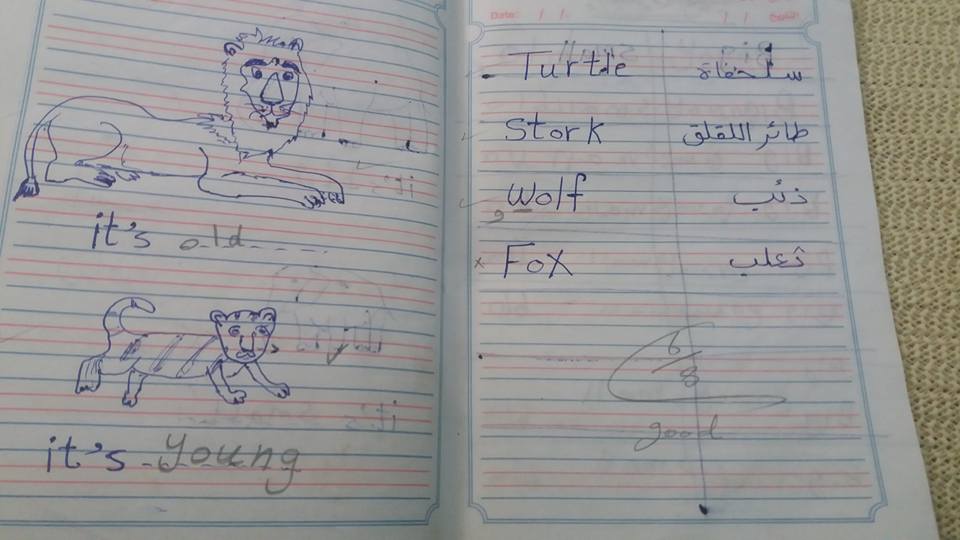 it's old
it's young
Date: / / / /
Turtle سلحفاة
Stork طائر اللقلق
Wolf ذئب
و
x Fox ثعلب
6/8
good